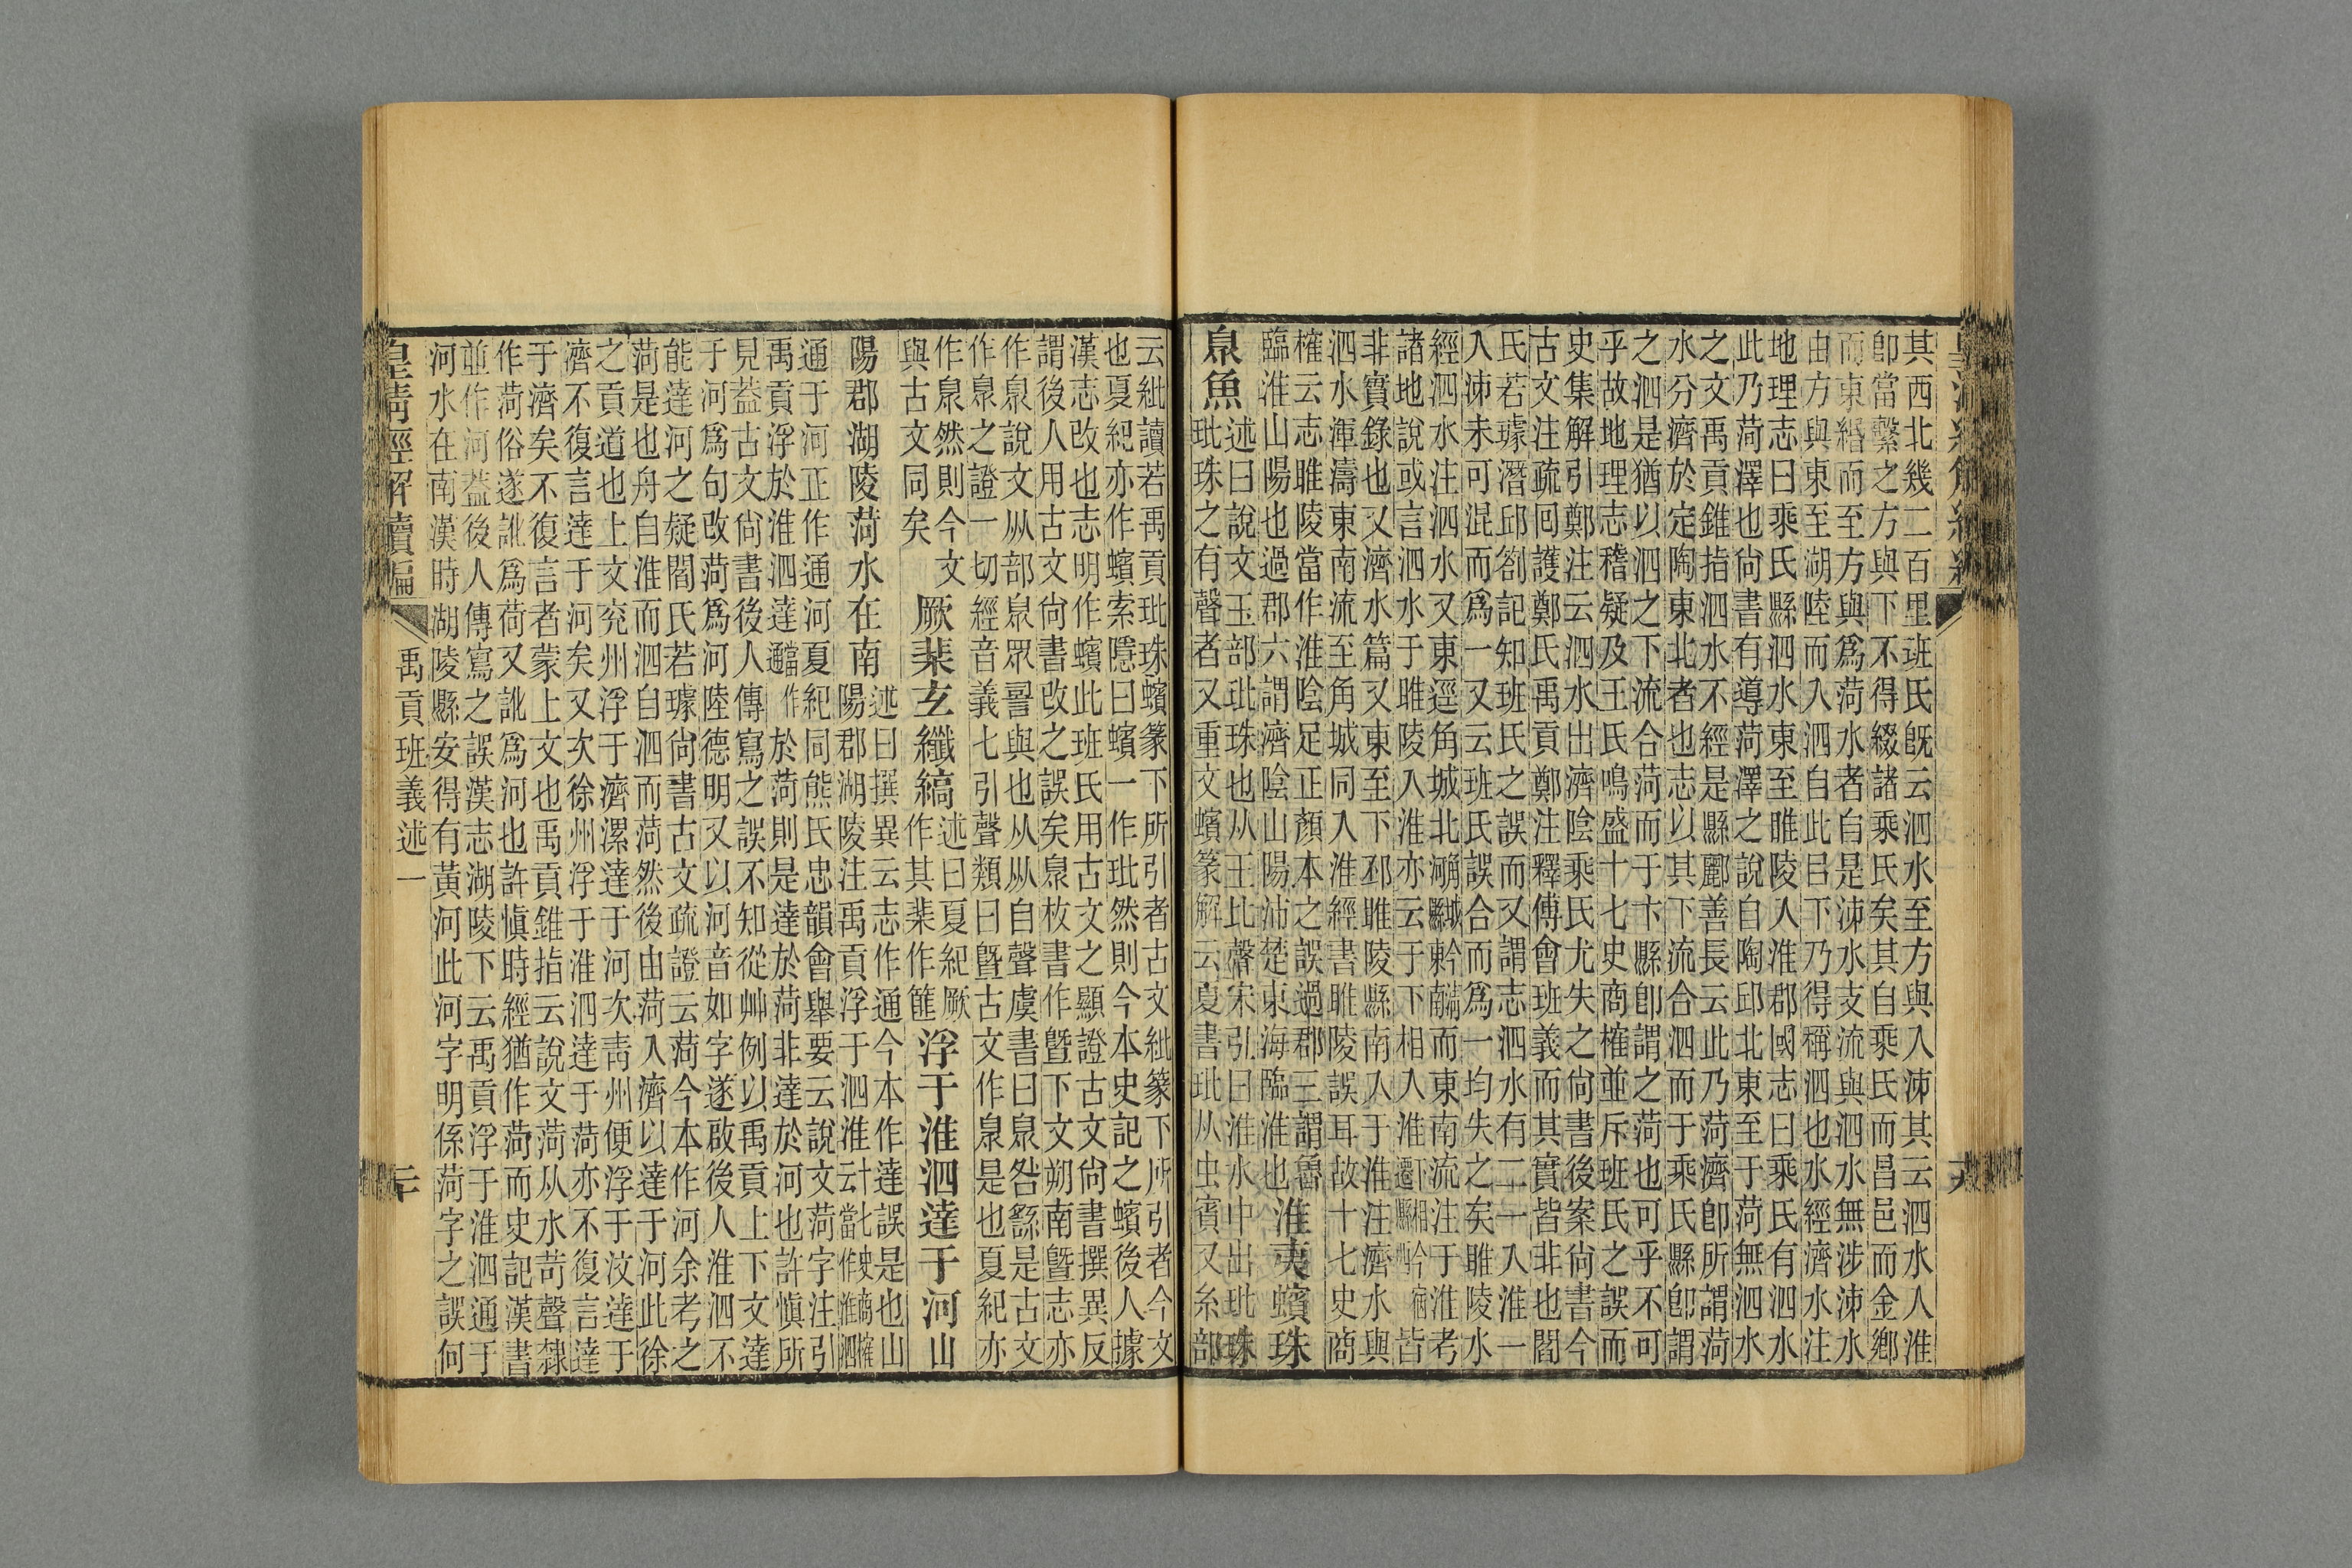 其西北幾二百里班氏既云泗水至方與入沛其云泗水入淮
即當繫之方與下不得綴諸乘氏矣其自乘氏而昌邑而金鄉
而東緡而至方與為菏水者自是沛水支流與泗水無涉沛水
由方與東至湖陸而入泗自此㠯下乃得稱泗也水經濟水注
地理志曰乘氏縣泗水東至睢陵入淮郡國志曰乘氏有泗水
此乃菏澤也尚書有導菏澤之說自陶邱北東至于菏無泗水
之文禹貢錐指泗水不經是縣酈善長云此乃菏濟即所謂菏
水分濟於定陶東北者也志以其下流合泗而于乘氏縣即謂
之泗是猶以泗之下流合菏而于卞縣即謂之菏也可乎不可
乎故地理志稽疑及王氏鳴盛十七史商榷並斥班氏之誤而
史集解引鄭注云泗水出濟陰乘氏尤失之尚書後案尚書今
古文注疏回護鄭氏禹貢鄭注釋傅會班義而其實皆非也閻
氏若璩潛邱劄記知班氏之誤而又謂志泗水有二一入淮一
入沛未可混而為一又云班氏誤合而為一均失之矣睢陵水
經泗水注泗水又東逕角城北而東南流注于淮考
諸地說或言泗水于睢陵入淮亦云于下相入淮皆
非實錄也又濟水篇又東至下邳睢陵縣南入于淮注濟水與
泗水渾濤東南流至角城同入淮經書睢陵誤耳故十七史商
榷云志睢陵當作淮陰足正顏本之誤過郡三謂魯
臨淮山陽也過郡六謂濟陰山陽沛楚東海臨淮也淮夷蠙珠
臮魚述曰說文玉部玭珠也从王比聲宋引曰淮水中出玭珠
玭珠之有聲者又重文蠙篆解云夏書玭从虫賓又糸部
云紕讀若禹貢玭珠蠙篆下所引者古文紕篆下所引者今文
也夏紀亦作蠙索隱曰蠙一作玭然則今本史記之蠙後人據
漢志改也志明作蠙此班氏用古文之顯證古文尚書撰異反
謂後人用古文尚書改之誤矣臮枚書作曁下文朔南曁志亦
作臮說文㐺部臮眾䛐與也从㐺自聲虞書曰臮咎繇是古文
作臮之證一切經音義七引聲類曰曁古文作臮是也夏紀亦
作臮然則今文與古文同矣厥棐玄纖縞述曰夏紀厥作其棐作篚浮于淮泗達于河山
陽郡湖陵菏水在南述曰撰異云志作通今本作達誤是也山陽郡湖陵注禹貢浮于泗淮
通于河正作通河夏紀同熊氏忠韻會舉要云說文菏字注引
禹貢浮於淮泗達當作通於菏則是達於菏非達於河也許慎所
見蓋古文尚書後人傳寫之誤不知從艸例以禹貢上下文達
于河為句改菏為河陸德明又以河音如字遂啟後人淮泗不
能達河之疑閻氏若璩尚書古文疏證云菏今本作河余考之
菏是也舟自淮而泗自泗而菏然後由菏入濟以達于河此徐
之貢道也上文兖州浮于濟漯達于河次青州便浮于汶達于
濟不復言達于河矣又次徐州浮于淮泗達于菏亦不復言達
于濟矣不復言者蒙上文也禹貢錐指云說文菏从水苛聲隸
作菏俗遂訛為荷又訛為河也許慎時經猶作菏而史記漢書
並作河蓋後人傳寫之誤漢志湖陵下云禹貢浮于淮泗通于
河水在南漢時湖陵縣安得有黃河此河字明係菏字之誤何
皇清經解續編
禹貢班義述一
二十